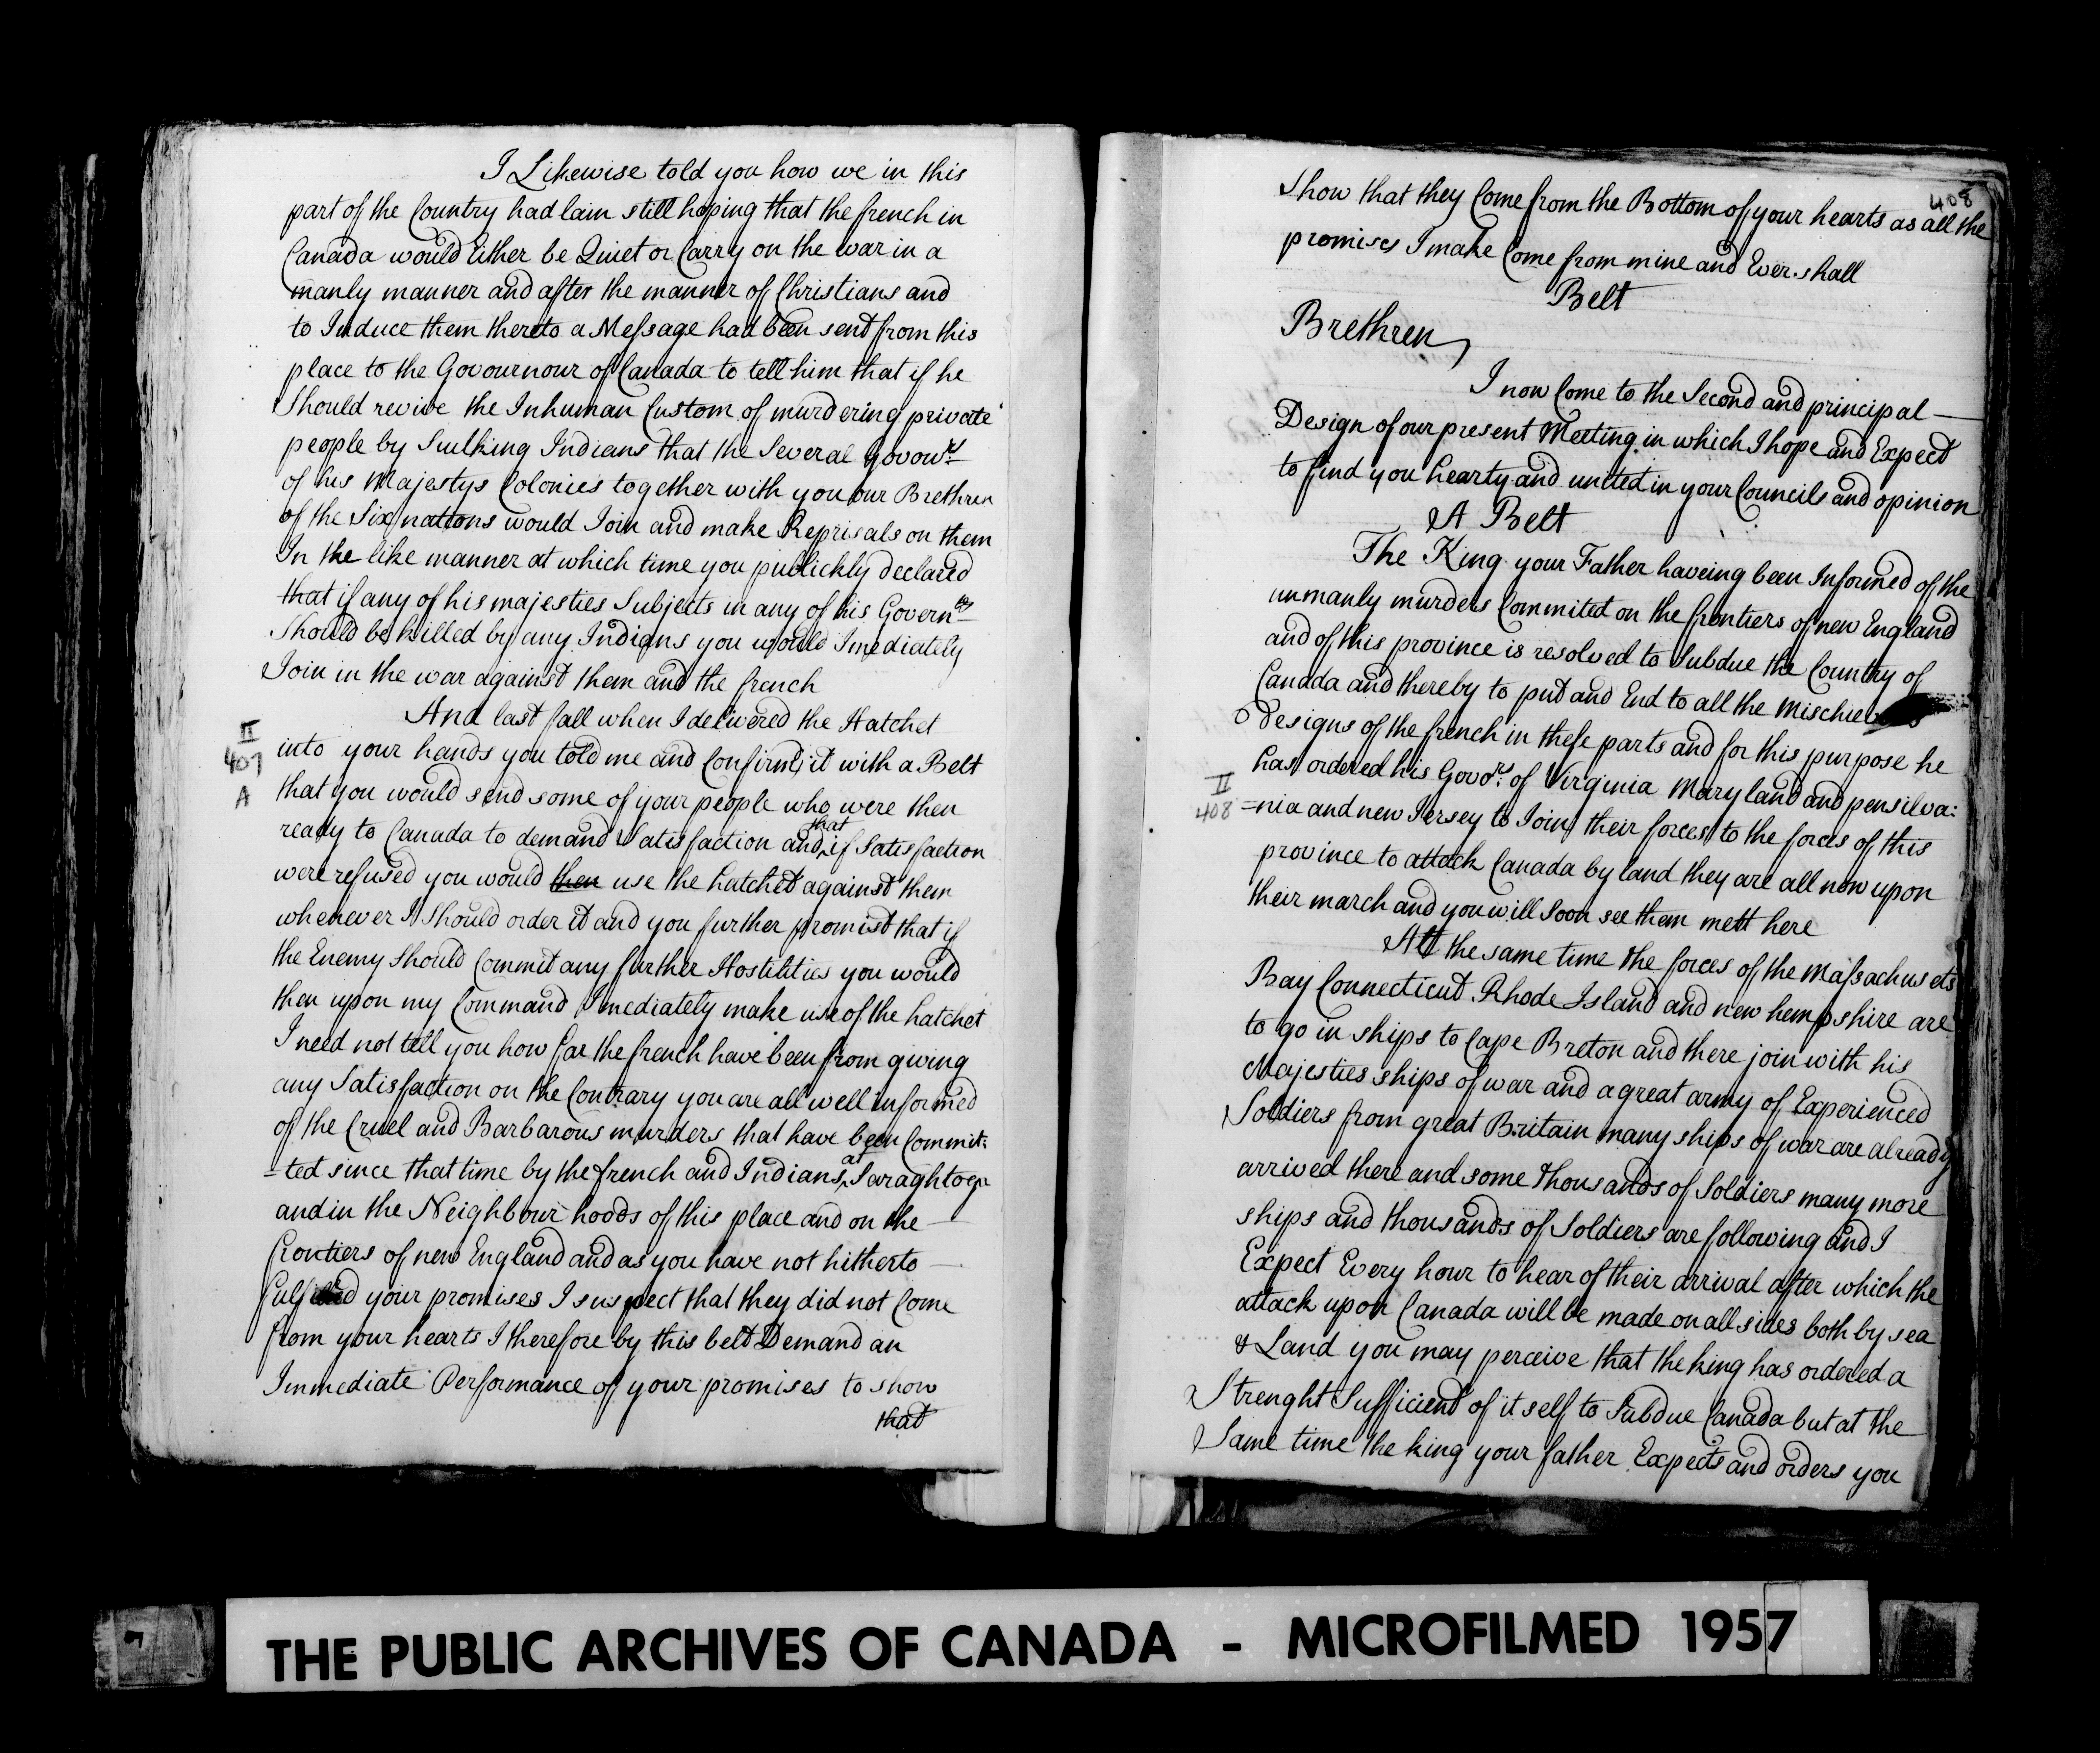 I Likewise told you how we in this
part of the Country had lain still hoping that the french in
Canada would Either be Quiet or Carry on the war in a
manly manner and after the manner of Christians and
to Induce them thereto a Message had been sent from this
place to the Govournour of Canada to tell him that if he
Should revive the Inhuman Custom of murdering private
people by Sculking Indians that the Several Govours
of his Majestys Colonies together with you our Brethren
of the Six nations would Join and make Reprisals on them
In the like manner at which time you publickly declared
that if any of his majesties Subjects in any of his Governts
Should be killed by any Indians you would Imediately
Join in the war against them and the french
And last fall when I delivered the Hatchet
II
407
A
into your hands you told me and Confirmd it with a Belt
that you would send some of your people who were then
ready to Canada to demand Satisfaction and that if Satisfaction
were refused you would then use the hatchet against them
whenever I Should order it and you further promist that if
the Enemy Should Commit any further Hostilities you would
then upon my Command Imediately make use of the hatchet
I need not tell you how far the french have been from giving
any Satisfaction on the Contrary you are all well informed
of the Cruel and Barbarous murders that have been Commit:
=ted since that time by the french and Indians at Saraghtoga
and in the Neighbour hoods of this place and on the —
frontiers of new England and as you have not hitherto —
fulfilled your promises I suspect that they did not Come
from your hearts I therefore by this belt Demand an
Immediate Performance of your promises to show
that
408
Show that they Come from the Bottom of your hearts as all the
promises I make Come from mine and Ever shall
Belt
Brethren
I now Come to the Second and principal —
Design of our present Meeting in which I hope and Expect
to find you hearty and united in your Councils and opinion
A Belt
The King your Father haveing been Informed of the
unmanly murders Commited on the frontiers of new England
and of this province is resolved to Subdue the Country of
Canada and thereby to put and End to all the Mischievous
Designs of the french in these parts and for this purpose he
has ordered his Govors. of Virginia Maryland and pensilva:
II
408
=nia and new Jersey to Join their forces to the forces of this
province to attack Canada by land they are all now upon
their march and you will Soon see them mett here
Att the same time the forces of the Massachusets
Bay Connecticut Rhode Island and new hempshire are
to go in ships to Cape Breton and there join with his
Majesties ships of war and a great army of Experienced
Soldiers from great Britain many ships of war are already
arrived there and some thousands of Soldiers many more
ships and thousands of Soldiers are following and I
Expect Every hour to hear of their arrival after which the
attack upon Canada will be made on all sides both by sea
& Land you may perceive that the king has ordered a
Strenght Sufficient of it self to Subdue Canada but at the
Same time the king your father Expects and orders you
THE PUBLIC ARCHIVES OF CANADA - MICROFILMED 1957